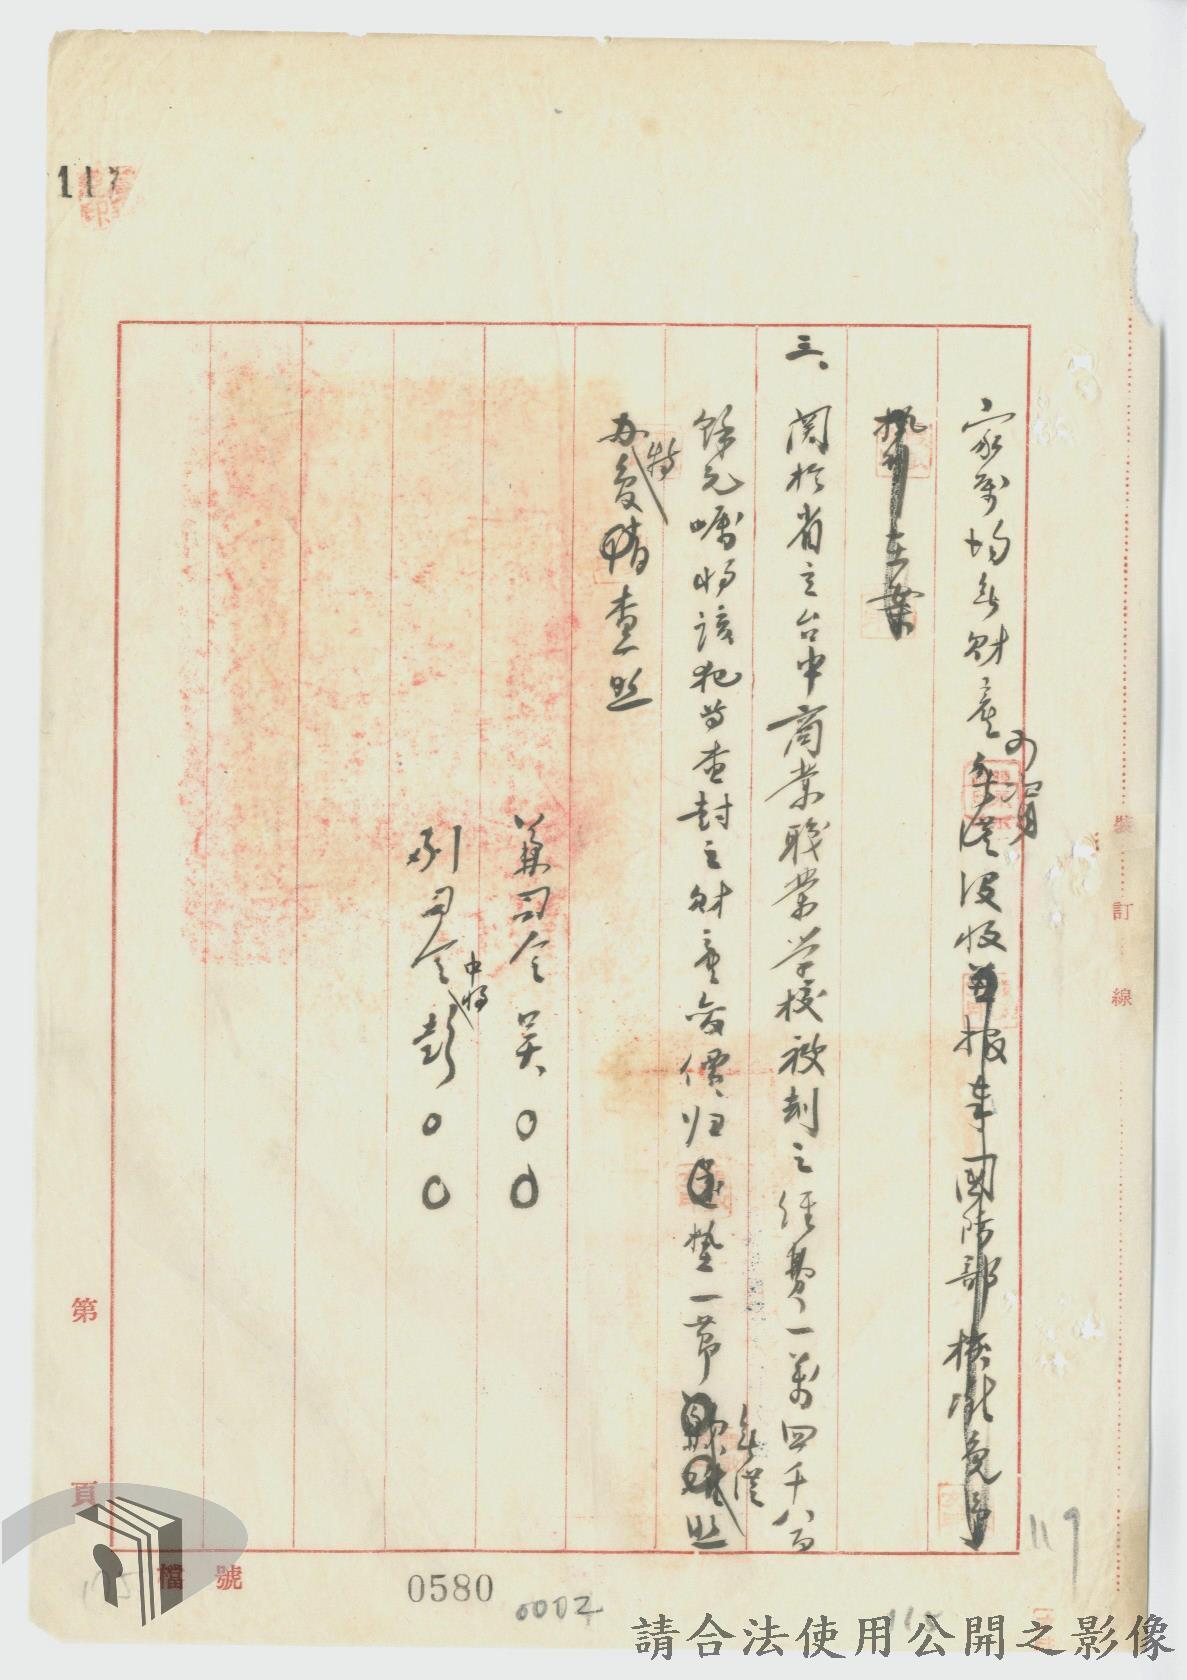 家屬均無財產可資
無從沒收並報奉國防部核准免予
執行在案
三、關於省立台中商業職業学校被劫之經費一萬四千八百
餘元囑將該犯等查封之財產變價归還墊一節無從照
办特復請查照
兼司令 吳〇〇
副司令 中將 彭〇〇
裝
訂
線
第
頁
檔 號
0580
0002
117
119
請合法使用公開之影像